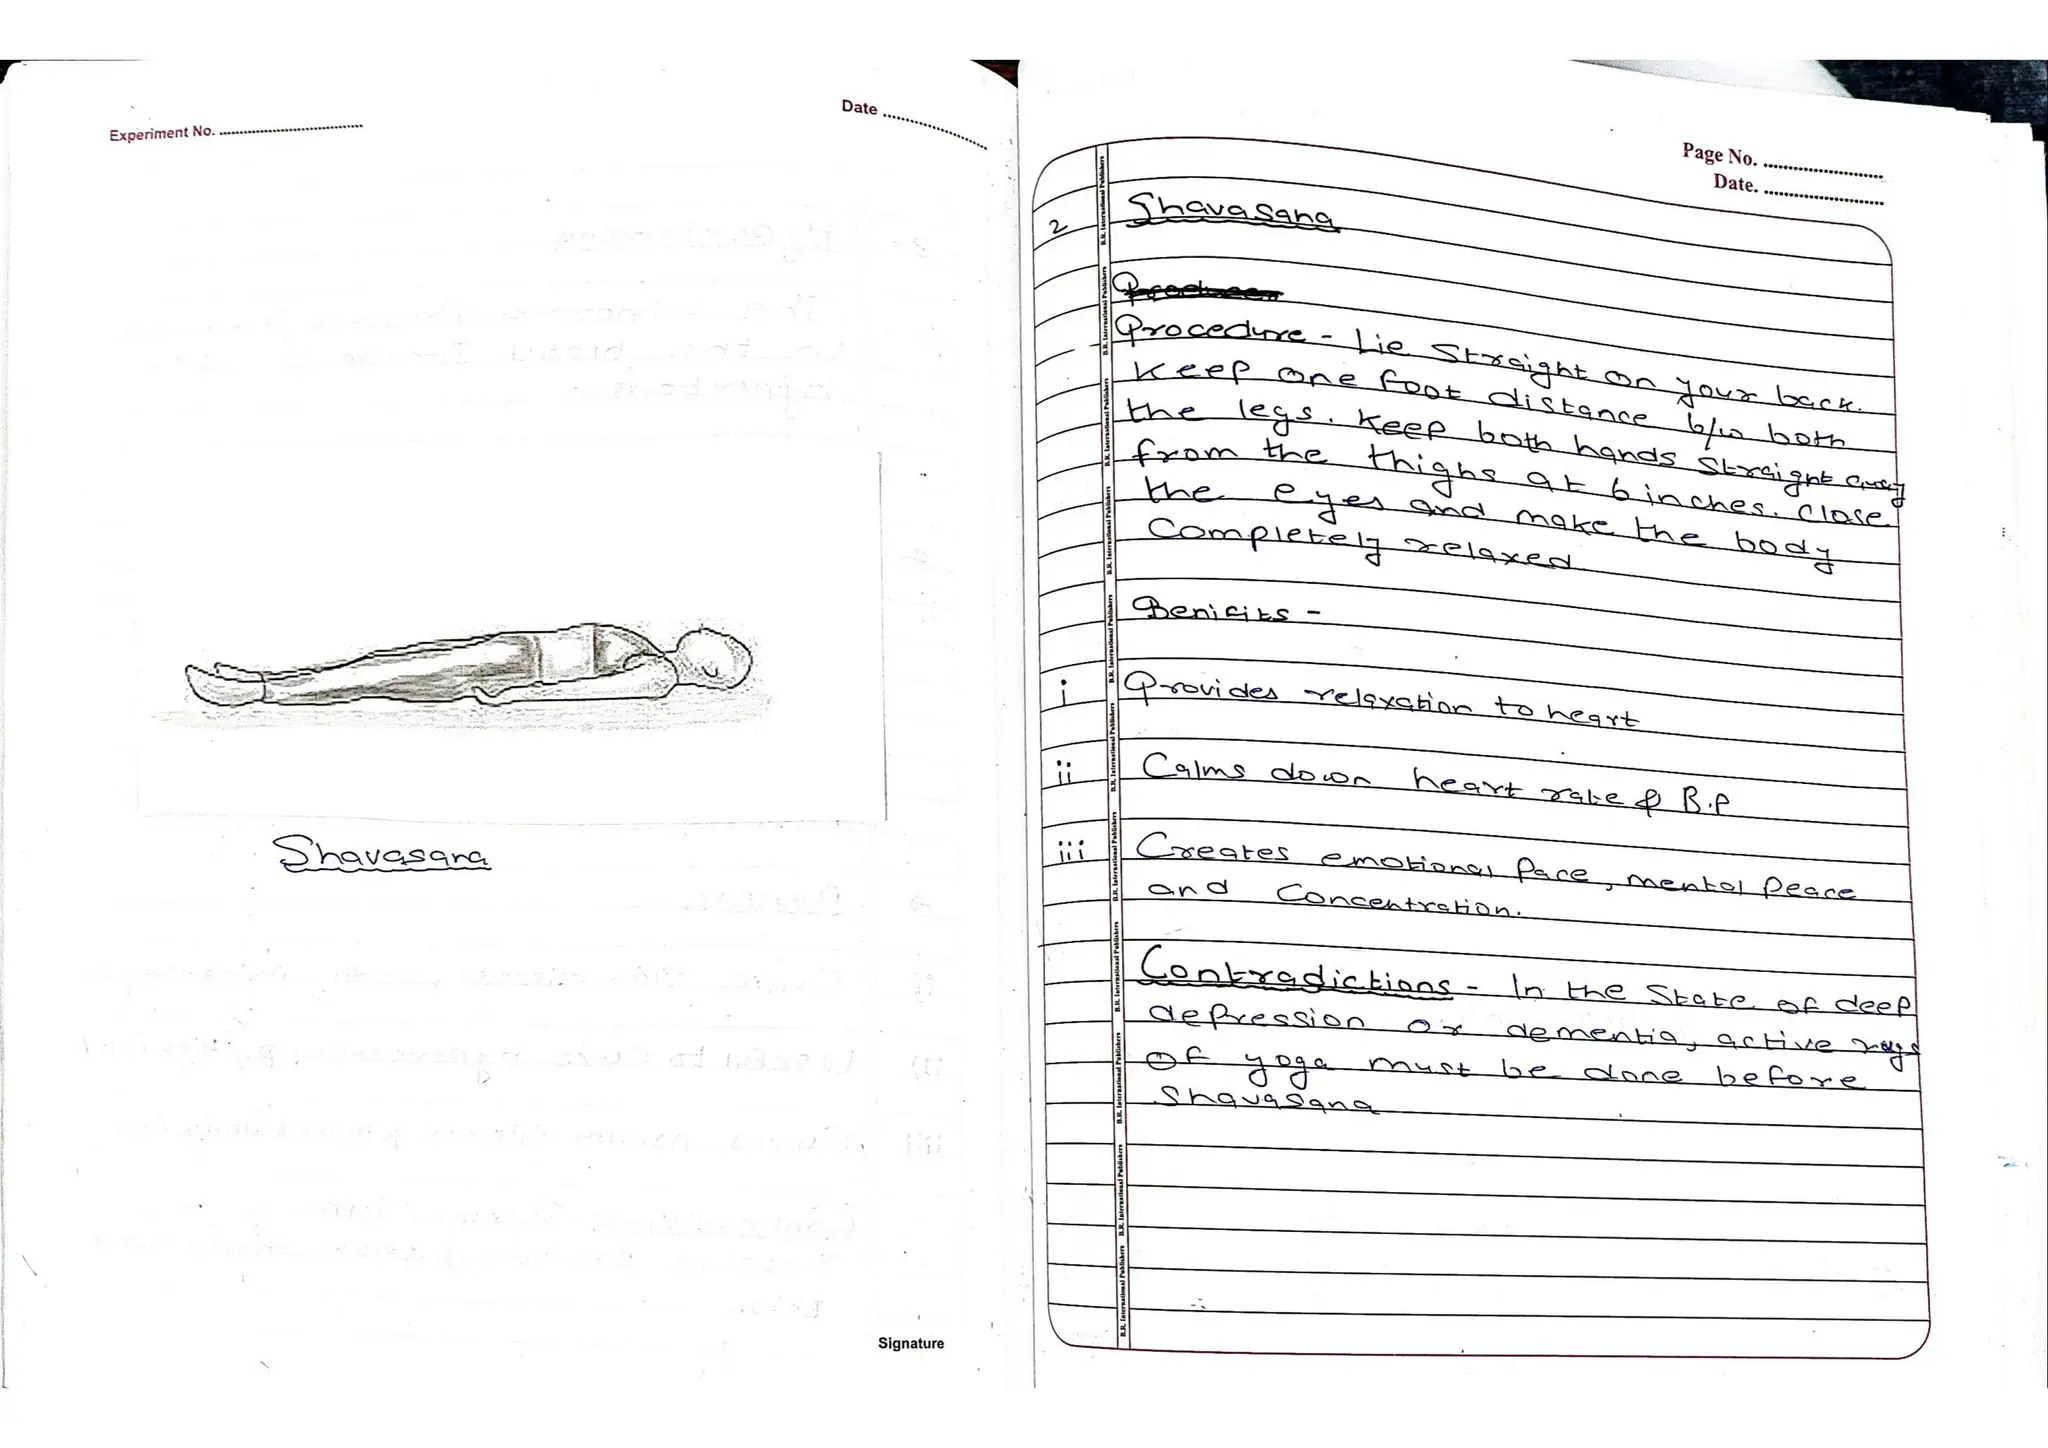 Experiment No.
Date
Shavasana
Signature
Page No.
Date.
2 Shavasana
Procedure - Lie Straight on your back.
Keep one foot distance b/w both
the legs. Keep both hands Straight away
from the thighs at 6 inches. Close
the eyes and make the body
Completely relaxed
Benifits -
i Provides relaxation to heart
ii Calms down heart rate & B.P
iii Creates emotional Pace, mental Peace
and Concentration.
Contradictions - In the State of deep
depression or dementia, active
of yoga must be done before
Shavasana
B.R. International Publishers